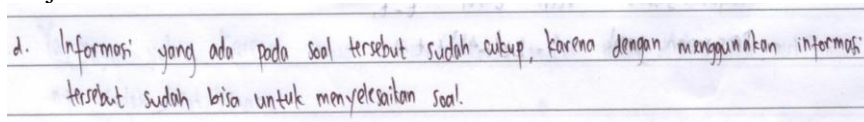 d. Informasi yang ada pada soal tersebut sudah cukup, karena dengan menggunakan informasi
tersebut sudah bisa untuk menyelesaikan soal.